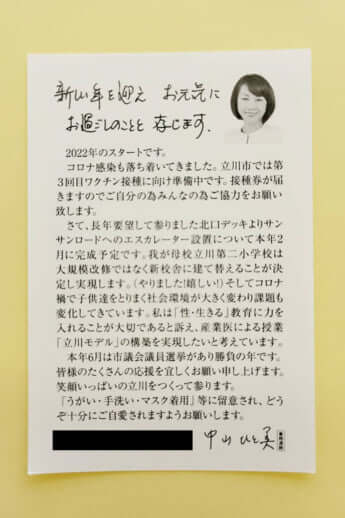 新しい年を迎え お元気に
お過ごしのことと 存じます。
2022年のスタートです。
コロナ感染も落ち着いてきました。立川市では第
3回目ワクチン接種に向け準備中です。接種券が届
きますのでご自分の為みんなの為ご協力をお願い
致します。
さて、長年要望して参りました北口デッキよりサン
サンロードへのエスカレーター設置について本年2
月に完成予定です。我が母校立川第二小学校は
大規模改修ではなく新校舎に建て替えることが決
定し実現します。（やりました!嬉しい!）そしてコロナ
禍で子供達をとりまく社会環境が大きく変わり課題も
変化してきています。私は「性・生きる」教育に力を
入れることが大切であると訴え、産業医による授業
「立川モデル」の構築を実現したいと考えています。
本年6月は市議会議員選挙があり勝負の年です。
皆様のたくさんの応援を宜しくお願い申し上げます。
笑顔いっぱいの立川をつくって参ります。
「うがい・手洗い・マスク着用」等に留意され、どう
ぞ十分にご自愛されますようお願いします。
中山ひと美